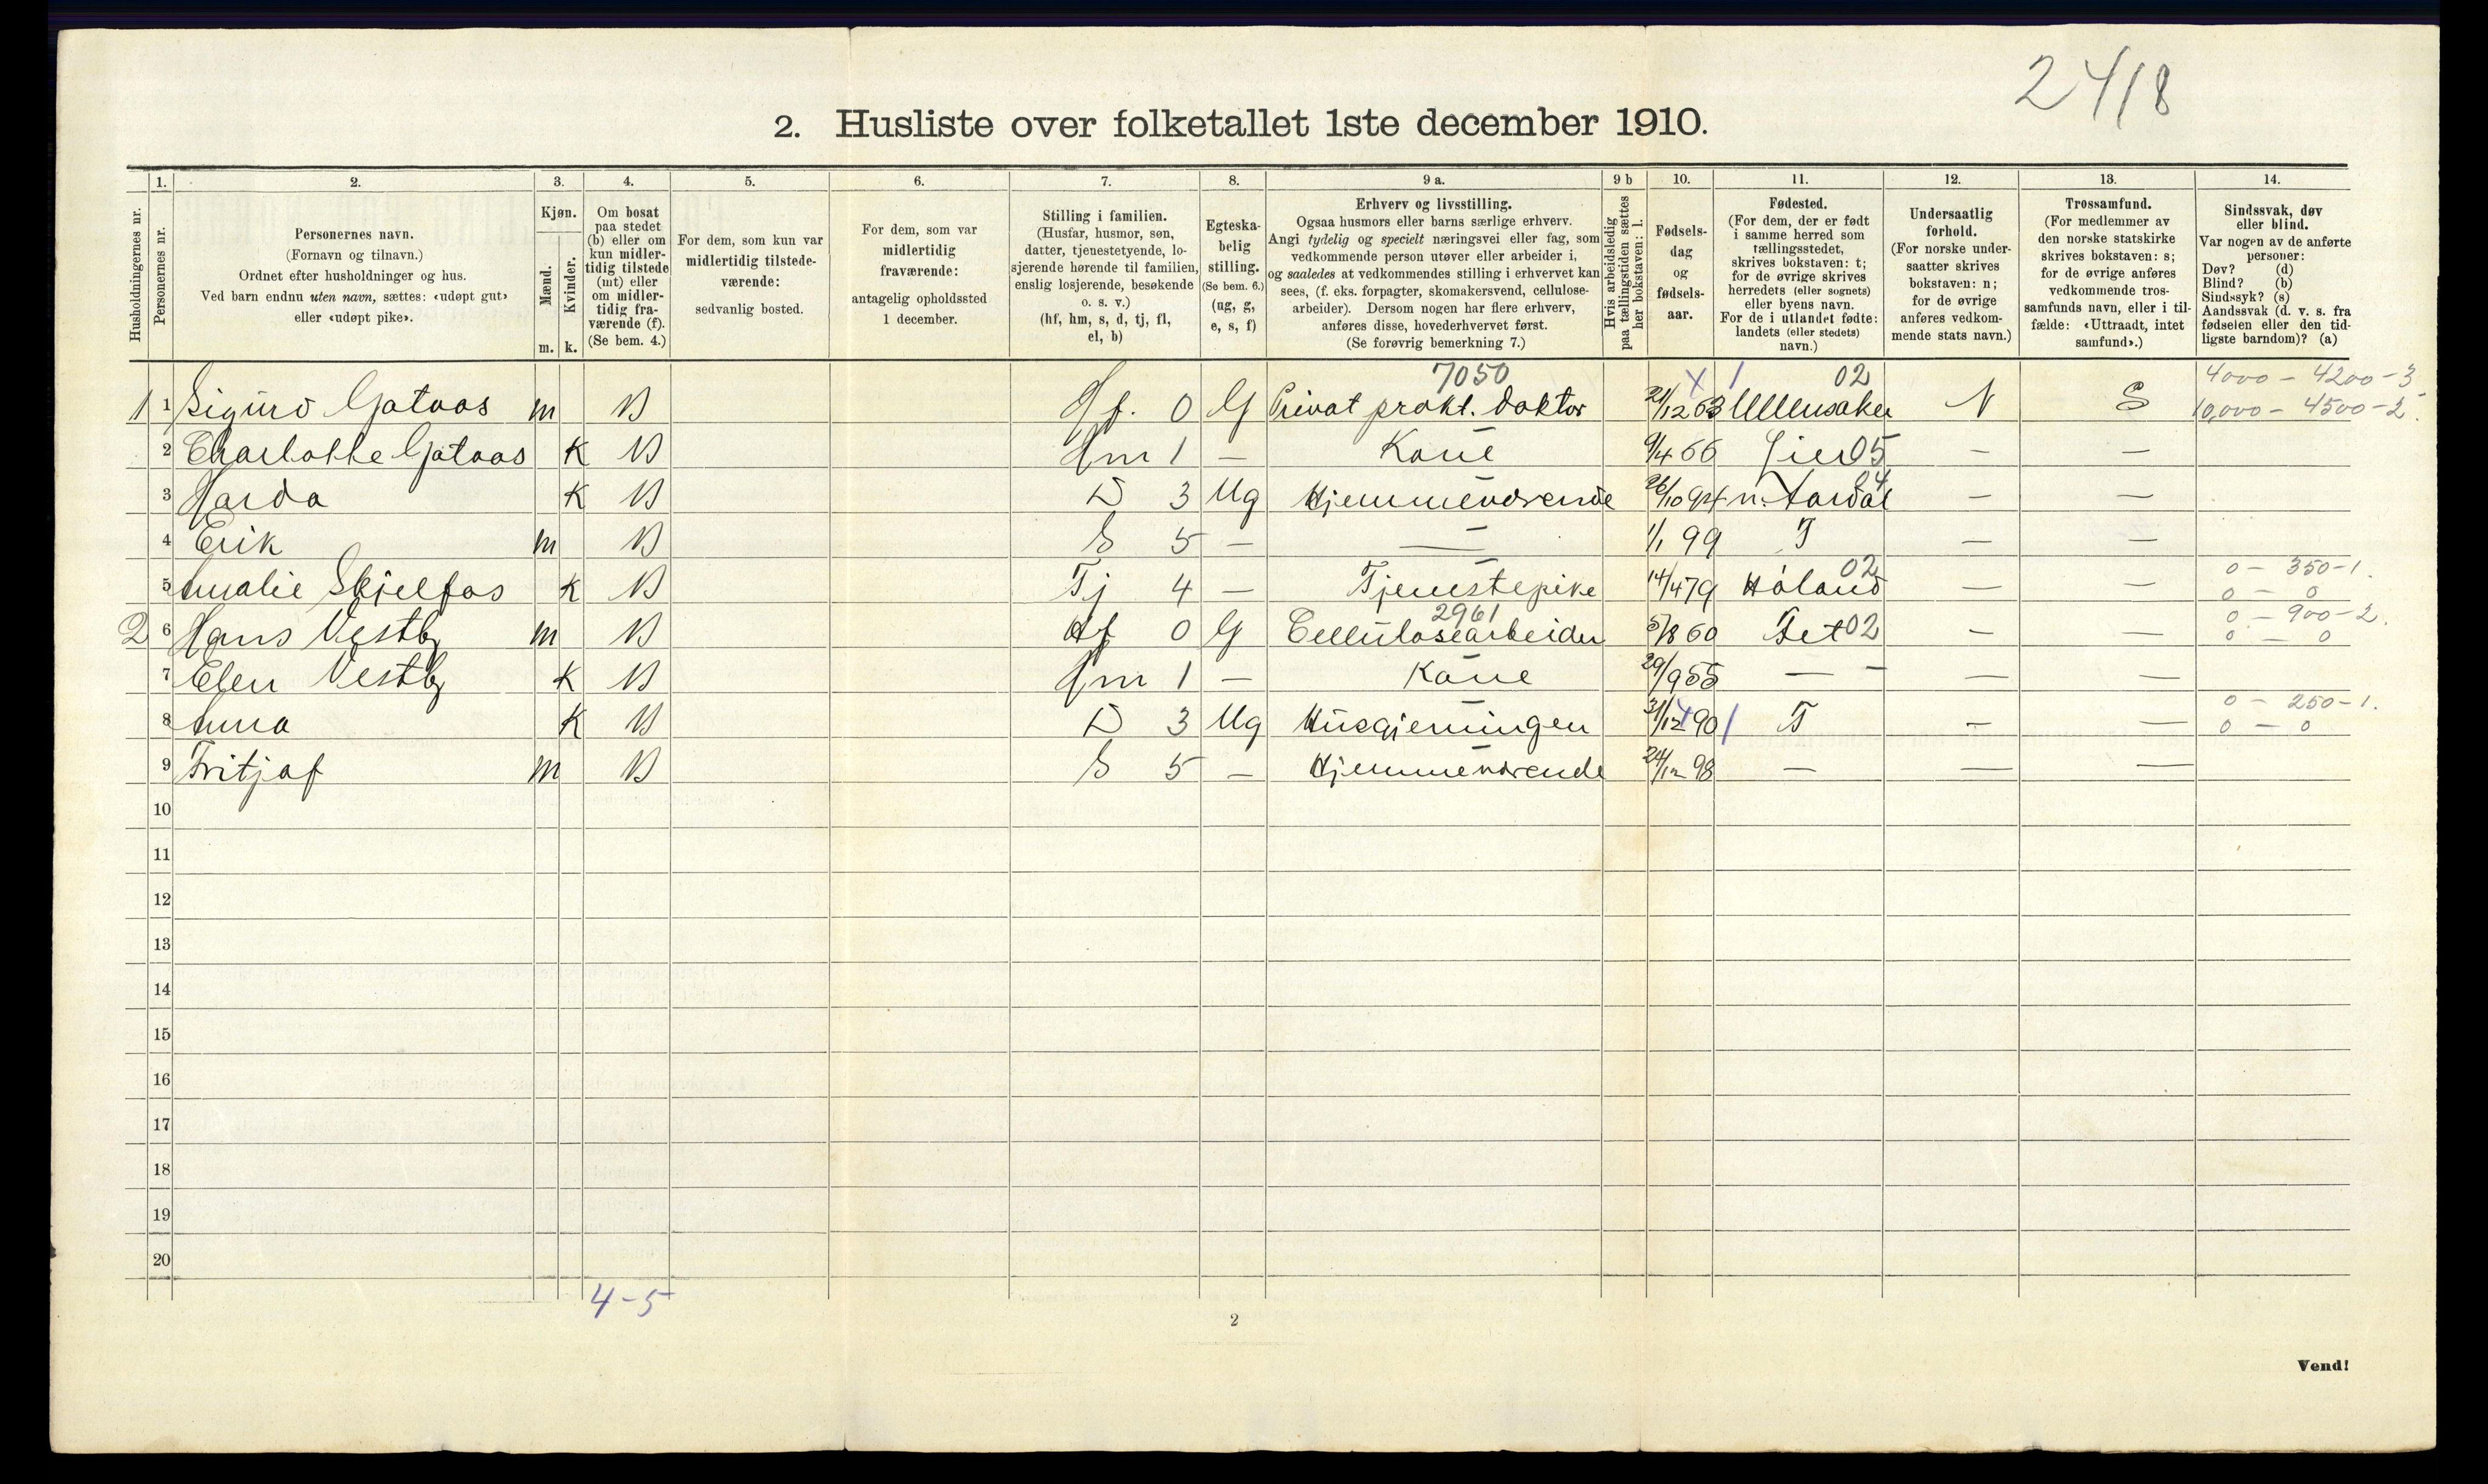 24/8
2. Husliste over folketallet 1ste december 1910.
Husholdningernes nr.
1. Personernes nr.
2. Personernes navn.
(Fornavn og tilnavn.)
Ordnet efter husholdninger og hus.
Ved barn endnu uten navn, sættes: «udøpt gut»
eller «udøpt pike».
3. Kjøn.
Mænd. Kvinder.
m. k.
4. Om bosat
paa stedet
(b) eller om
kun midler-
tidig tilstede
(mt) eller
om midler-
tidig fra-
værende (f).
(Se bem. 4.)
5. For dem, som kun var
midlertidig tilstede-
værende:
sedvanlig bosted.
6. For dem, som var
midlertidig
fraværende:
antagelig opholdssted
1 december.
7. Stilling i familien.
(Husfar, husmor, søn,
datter, tjenestetyende, lo-
sjerende hørende til familien,
enslig losjerende, besøkende
o. s. v.)
(hf, hm, s, d, tj, fl,
el, b)
8. Egteska-
belig
stilling.
(Se bem. 6.)
(ug, g,
e, s, f)
9 a. Erhverv og livsstilling.
Ogsaa husmors eller barns særlige erhverv.
Angi tydelig og specielt næringsvei eller fag, som
vedkommende person utøver eller arbeider i,
og saaledes at vedkommendes stilling i erhvervet kan
sees, (f. eks. forpagter, skomakersvend, cellulose-
arbeider). Dersom nogen har flere erhverv,
anføres disse, hovederhvervet først.
(Se forøvrig bemerkning 7.)
9 b Hvis arbeidsledig
paa tællingstiden sættes
her bokstaven: l.
10. Fødsels-
dag
og
fødsels-
aar.
11. Fødested.
(For dem, der er født
i samme herred som
tællingsstedet,
skrives bokstaven: t;
for de øvrige skrives
herredets (eller sognets)
eller byens navn.
For de i utlandet fødte:
landets (eller stedets)
navn.)
12. Undersaatlig
forhold.
(For norske under-
saatter skrives
bokstaven: n;
for de øvrige
anføres vedkom-
mende stats navn.)
13. Trossamfund.
(For medlemmer av
den norske statskirke
skrives bokstaven: s;
for de øvrige anføres
vedkommende tros-
samfunds navn, eller i til-
fælde: «Uttraadt, intet
samfund».)
14. Sindssvak, døv
eller blind.
Var nogen av de anførte
personer:
Døv? (d)
Blind? (b)
Sindssyk? (s)
Aandssvak (d. v. s. fra
fødselen eller den tid-
ligste barndom)? (a)
7050 X / 02 4000 - 4200 - 3
1 1 Sigurd Gotaas m B Hf. 0 G Privat prakt. doktor 21/12 63 Ullensaker N S 10,000 - 4500 - 2
2 Charlotte Gotaas K B Hm 1 — Kone 9/4 66 Lier 05 — —
3 Harda K B D 3 Ug Hjemmeværende 26/10 94 n. Aardal 04 — —
4 Erik m B S 5 — — 1/1 99 T — —
02 0 - 350 - 1.
5 Amalie Skjelfos K B Tj 4 — Tjenestepike 14/4 79 Høland — — 0 - 0
2961 0 - 900 - 2.
2 6 Hans Vestby m B Hf 0 G Cellulosearbeider 5/8 60 Fet 02 — — 0 - 0
7 Elen Vestby K B Hm 1 — Kone 29/9 55 — — —
0 - 250 - 1.
8 Anna K B D 3 Ug Husgjerningen 31/12 90 / T — — 0 - 0
9 Fritjof m B S 5 — Hjemmeværende 24/12 98 — — —
10
11
12
13
14
15
16
17
18
19
20
4 - 5
2
Vend!